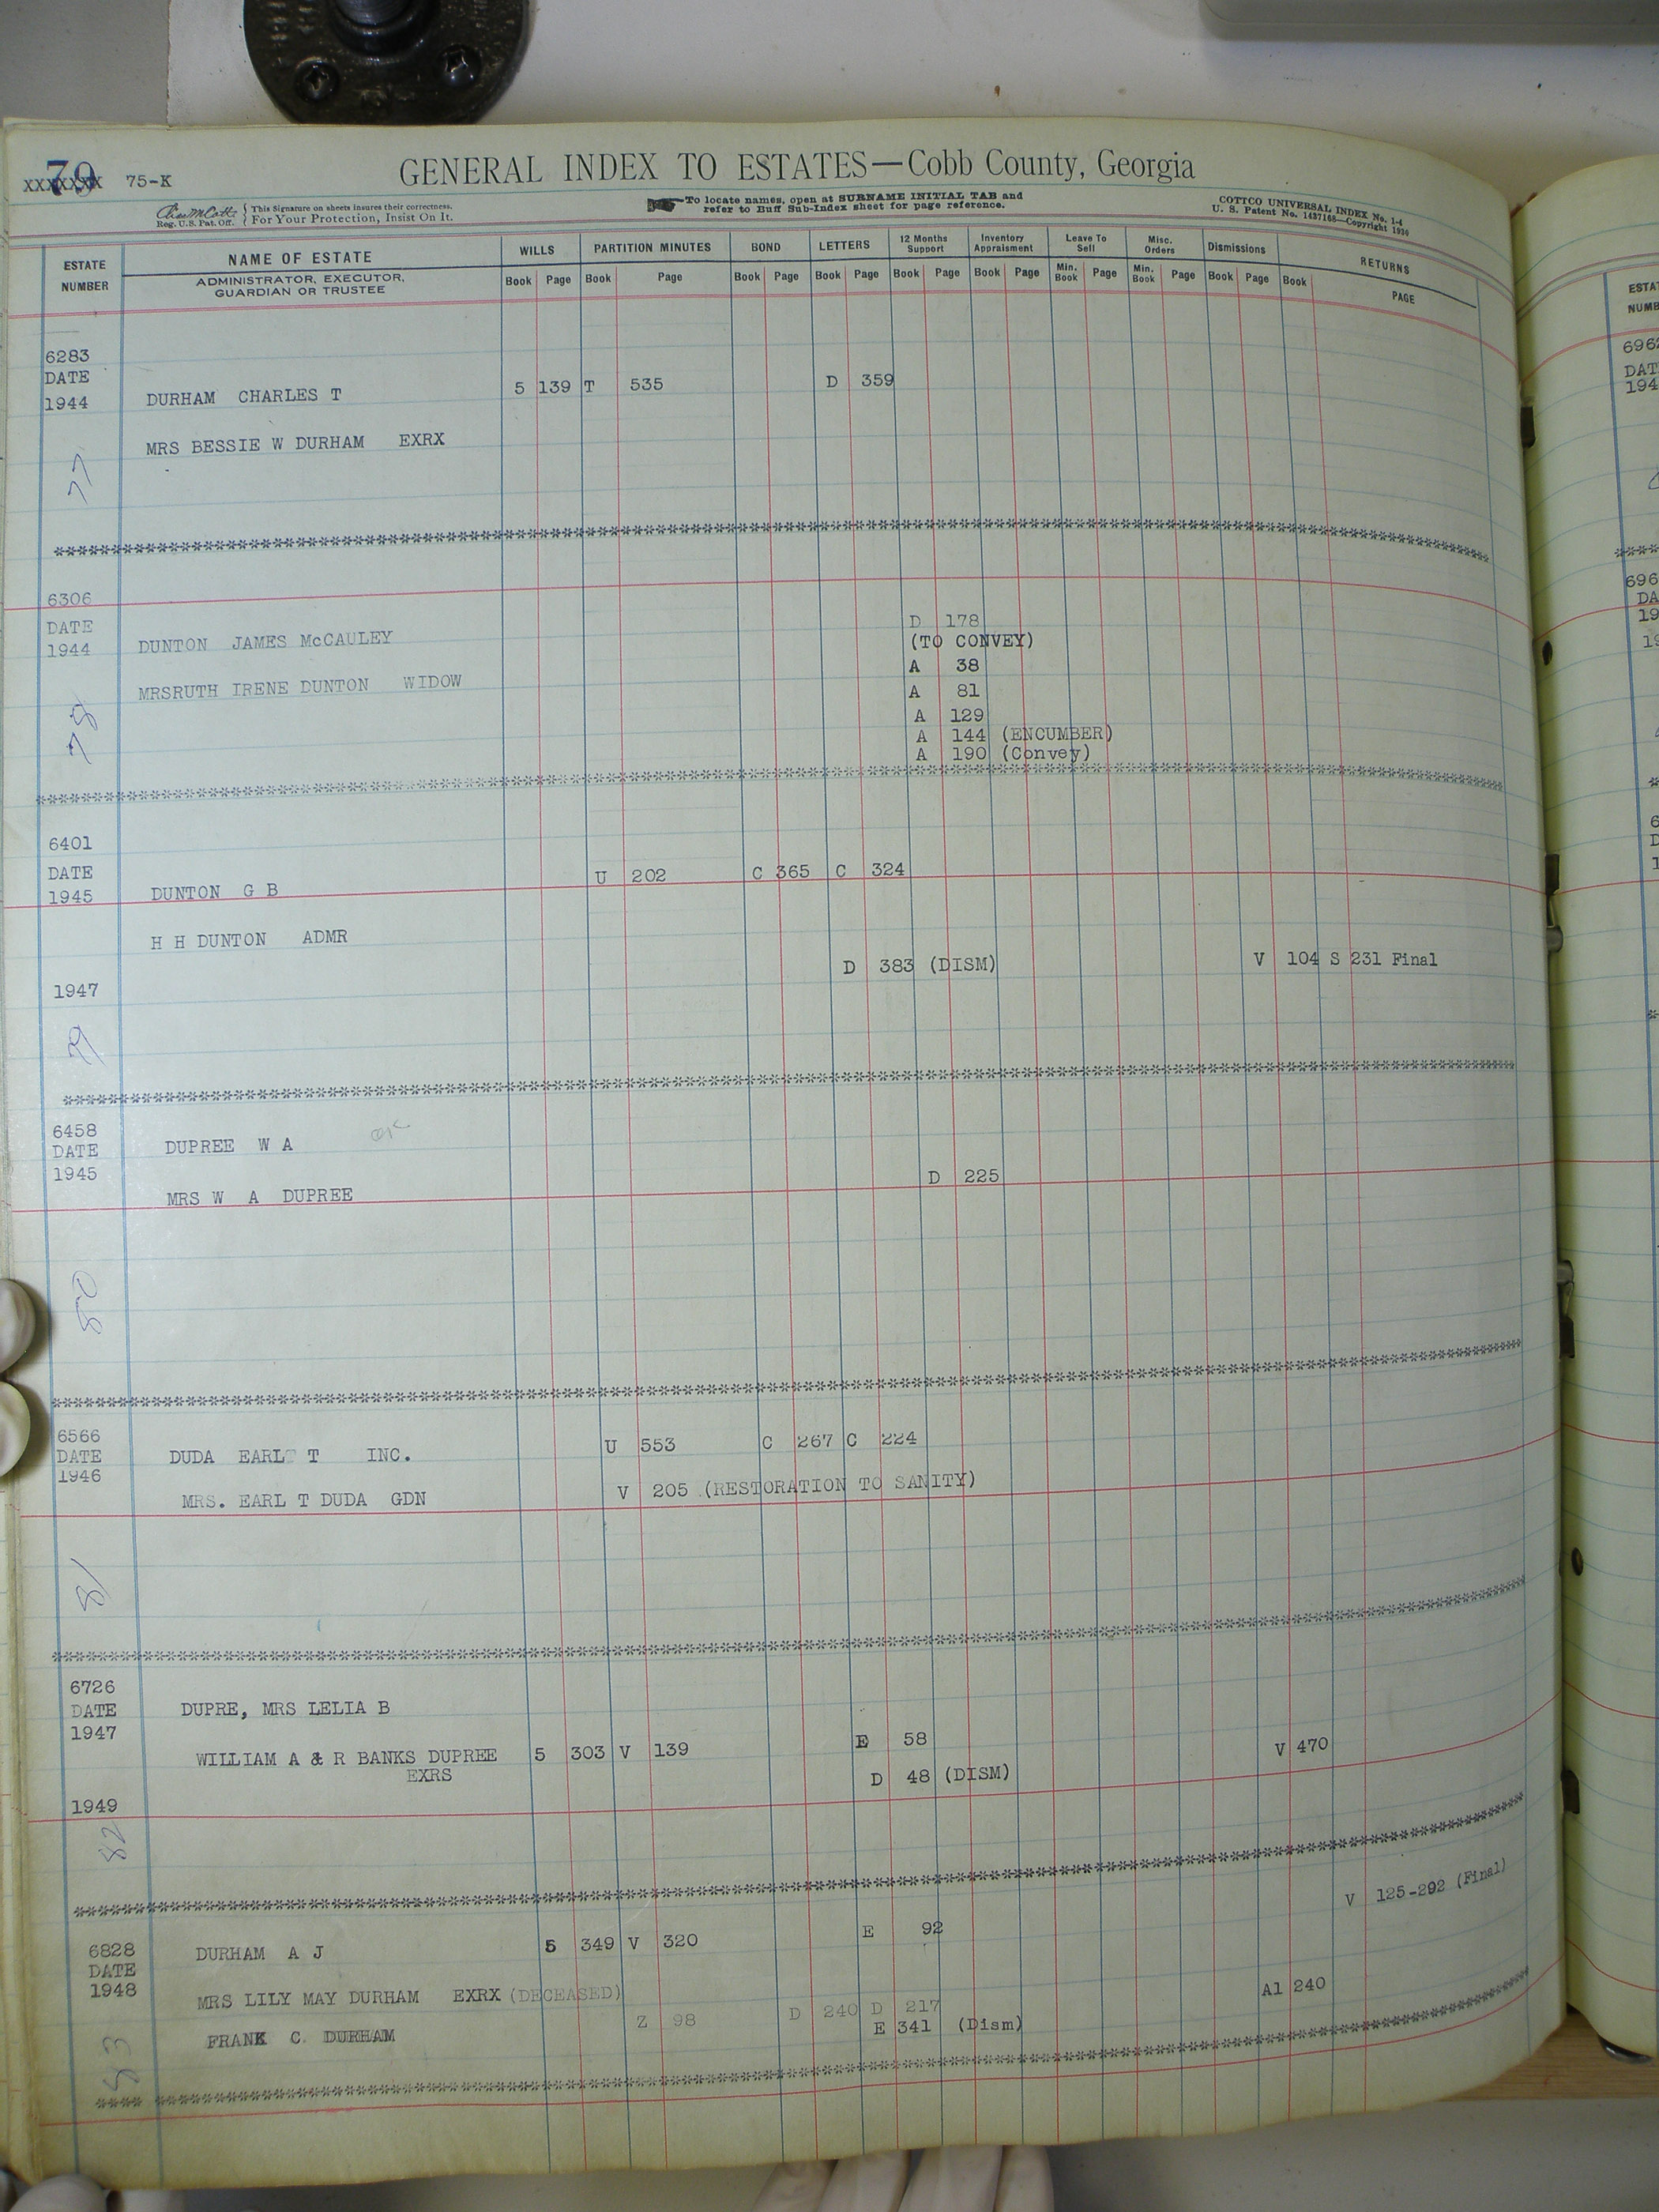 79
XXXXXXX 75-K
GENERAL INDEX TO ESTATES—Cobb County, Georgia
Reg. U.S. Pat. Off. { This Signature on sheets insures their correctness. For Your Protection, Insist On It.
To locate names, open at SURNAME INITIAL TAB and
refer to Buff Sub-Index sheet for page reference.
COTTCO UNIVERSAL INDEX No. 1-4
U. S. Patent No. 1437168—Copyright 1936
ESTATE NUMBER
NAME OF ESTATE
ADMINISTRATOR, EXECUTOR,
GUARDIAN OR TRUSTEE
WILLS PARTITION MINUTES BOND LETTERS 12 Months Support Inventory Appraisment Leave To Sell Misc. Orders Dismissions RETURNS
Book Page Book Page Book Page Book Page Book Page Book Page Min. Book Page Min. Book Page Book Page Book PAGE
6283
DATE
1944 DURHAM CHARLES T 5 139 T 535 D 359
MRS BESSIE W DURHAM EXRX
77
6306
DATE D 178
1944 DUNTON JAMES McCAULEY (TO CONVEY)
A 38
MRSRUTH IRENE DUNTON WIDOW A 81
A 129
78 A 144 (ENCUMBER)
A 190 (Convey)
6401
DATE U 202 C 365 C 324
1945 DUNTON G B
H H DUNTON ADMR
D 383 (DISM) V 104 S 231 Final
1947
79
6458
DATE DUPREE W A OK
1945 D 225
MRS W A DUPREE
80
6566 U 553 C 267 C 224
DATE DUDA EARL T INC.
1946 V 205 (RESTORATION TO SANITY)
MRS. EARL T DUDA GDN
81
6726
DATE DUPRE, MRS LELIA B
1947
WILLIAM A & R BANKS DUPREE 5 303 V 139 E 58 V 470
EXRS D 48 (DISM)
1949
82
V 125-292 (Final)
6828 DURHAM A J 5 349 V 320 E 92
DATE
1948 MRS LILY MAY DURHAM EXRX (DECEASED) A1 240
Z 98 D 240 D 217
FRANK C DURHAM E 341 (Dism)
83
ESTA
NUMB
696
DAT
194
696
DA
19
19
6
D
1